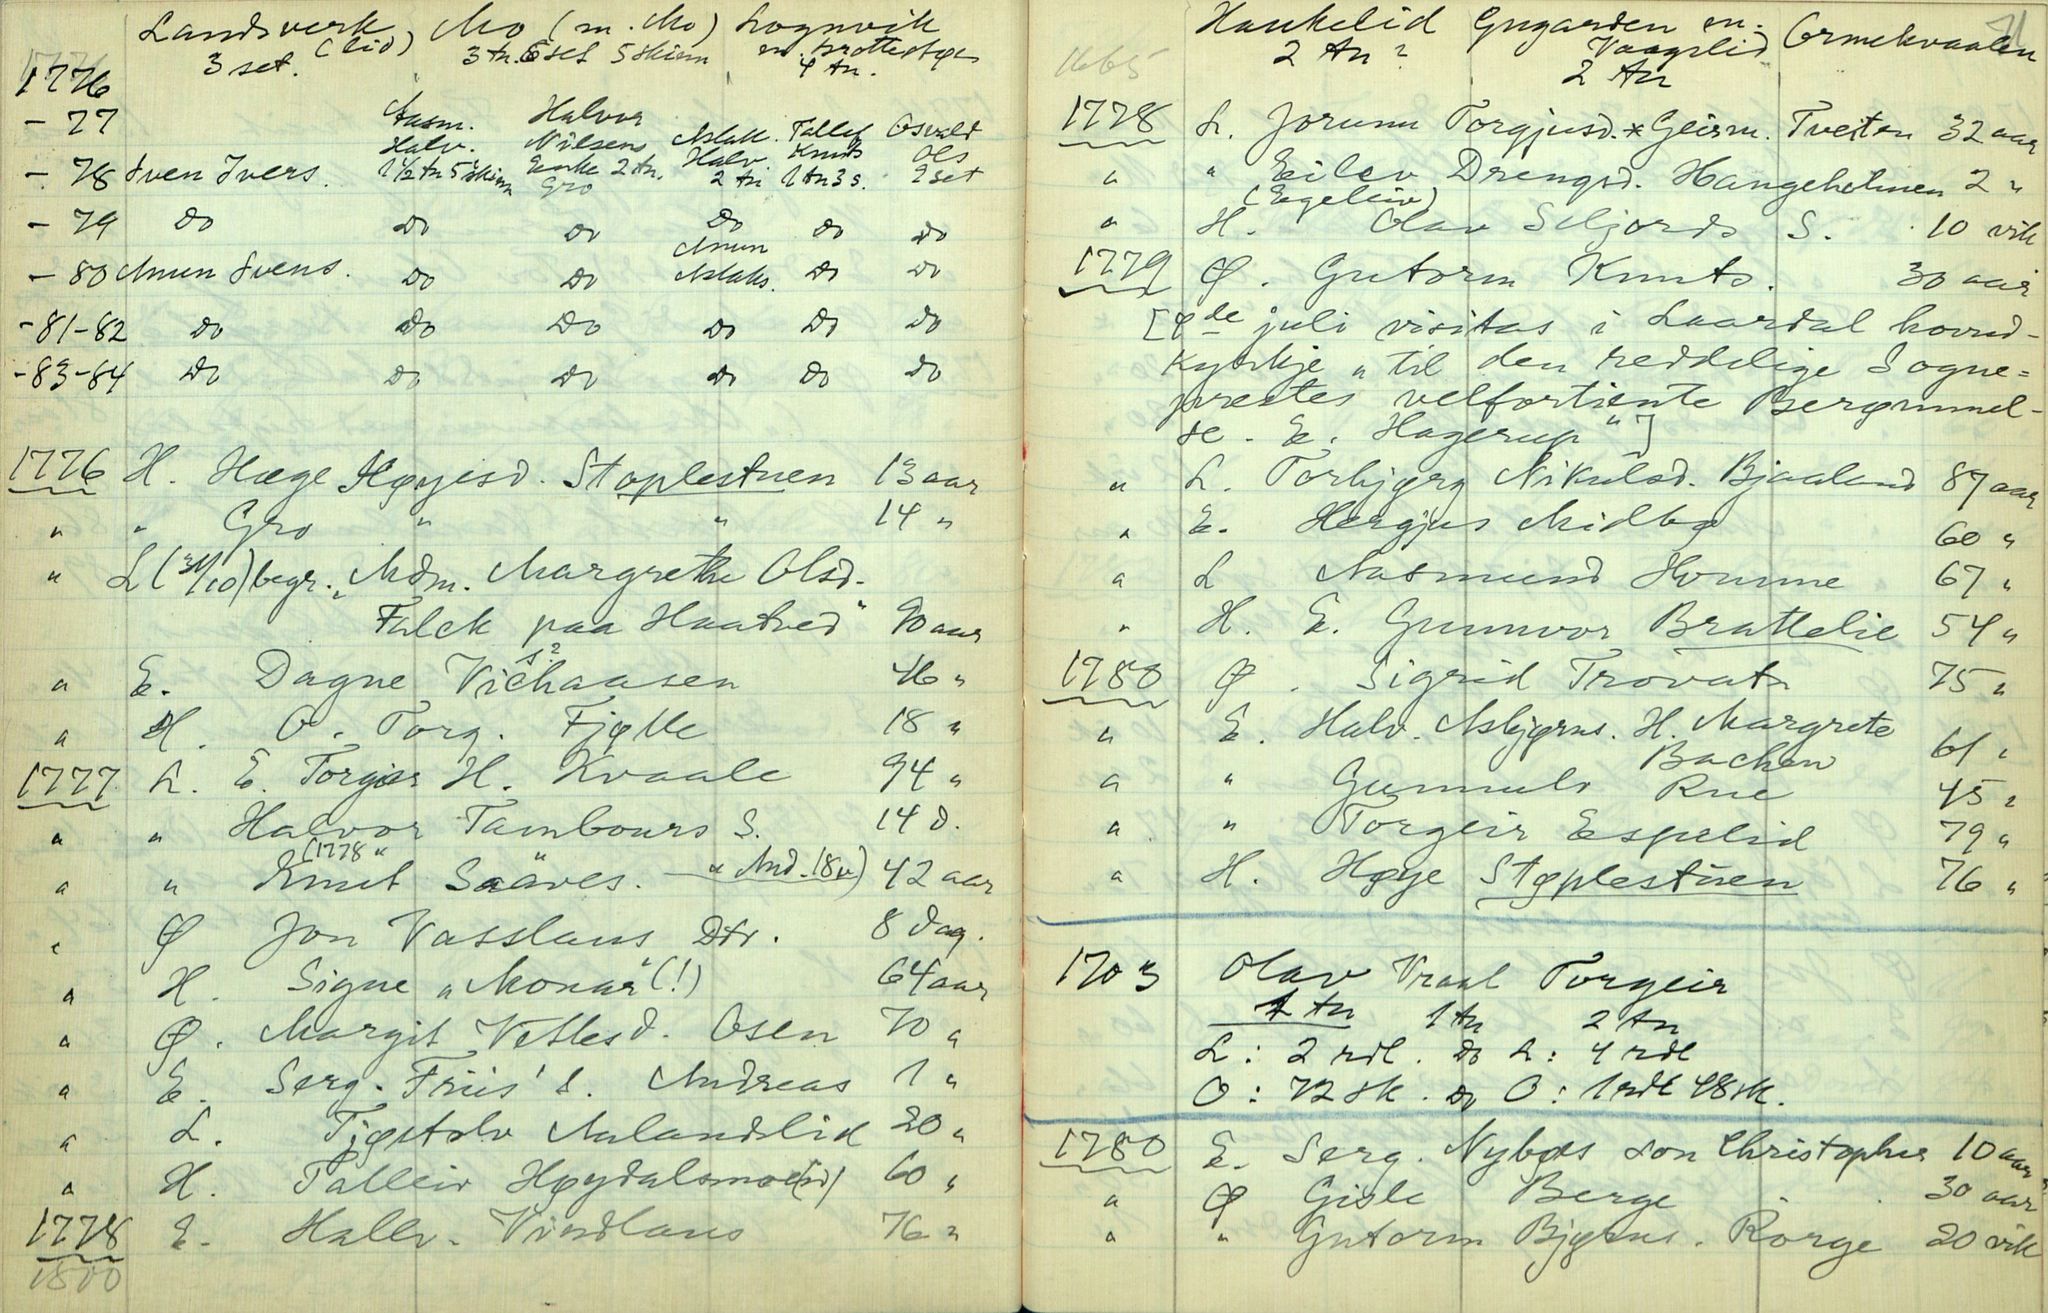 Landsverk (lid) Mo (m. Mo) Lognvik
3 set. 3 tn. 6 set 5 skinn m. Brottestøyl 4 tn.
1776
- 77 Aasm. Halvor
Halv. Nilsens Aslak Tallef Osvald
- 78 Sven Ivers. 1½ tn 5 skinn Enke 2 tn. Gro Halv. 2 tn Knuts 1 tn 3 s. Ols 2 set
- 79 Do Do Do Do Do Do
- 80 Amun Svens. Do Do Amun Aslaks. Do Do
- 81-82 Do Do Do Do Do Do
- 83-84 Do Do Do Do Do Do
1776 H. Hæge Høyesd. Støplestuen 13 aar
" " Gro " " 14 "
" L (31/10) begr. "Mdm. Margrethe Olsd.
Falck paa Haatved" 90 aar
" E. Dagne Vichaasen s? 46 "
" H. O. Torg. Fjølle 18 "
1777 L. E. Torgjer H. Kvaale 94 "
" " Halvor Tambours S. 14 d.
(1778 " " " And. 18 v)
" " Knut Saaves. 42 aar
" Ø Jon Vasslaus Dtr. 8 dag.
" H. Signe "Monar" (!) 64 aar
" Ø. Margit Vetlesd. Osen 70 "
" E. Serg. Friis's s. Andreas 1 "
" L. Tjøstolv Aalandslid 20 "
" H.Талleiv Høydalsmo(en) 60 "
1778 E. Hallv. Vindlaus 76 "
1800
Haukelid Gugarden m. Vaagslid Ormekvaalen
1665 2 tn? 2 tn 71
1778 L. Jorunn Torgjusd. * Geirm. Tveiten 32 aar
" " Eilev Drengsd. Hangeholmen 2 "
(Egeleiv)
" H. Olav Seljords S. 10 vik
1779 Ø. Gutorm Knuts. 30 aar
[8de juli visitas i Laardal hovud-
kyrkje "til den reddelige Sogne=
prestes velfortiente Berømmel-
se. E. Hagerup"]
" L. Torbjørg Nikulsd. Bjaaland 87 aar
" E. Hergjus Midbø 60 "
" L Aasmund Homme 67 "
" H. E. Gunnvor Brattelie 54 "
1780 Ø. Sigrid Trovatn 75 "
" E. Halv. Asbjørns. H. Margrete
Bachen 61 "
" " Gunnuls Rue 45 "
" " Torgeir Espelid 79 "
" H. Høye Støplestuen 76 "
1703 Olav Vraal Torgeir
1 tn 1 tn 2 tn
L: 2 rdl. Do L: 4 rdl
O: 72 sk. Do O: 1 rdl 48 sk.
1780 E. Serg. Nybøes son Christopher 10 aar
" Ø Gisle Berge 30 aar
" " Gutorm Bjørns. Rorge 20 vik